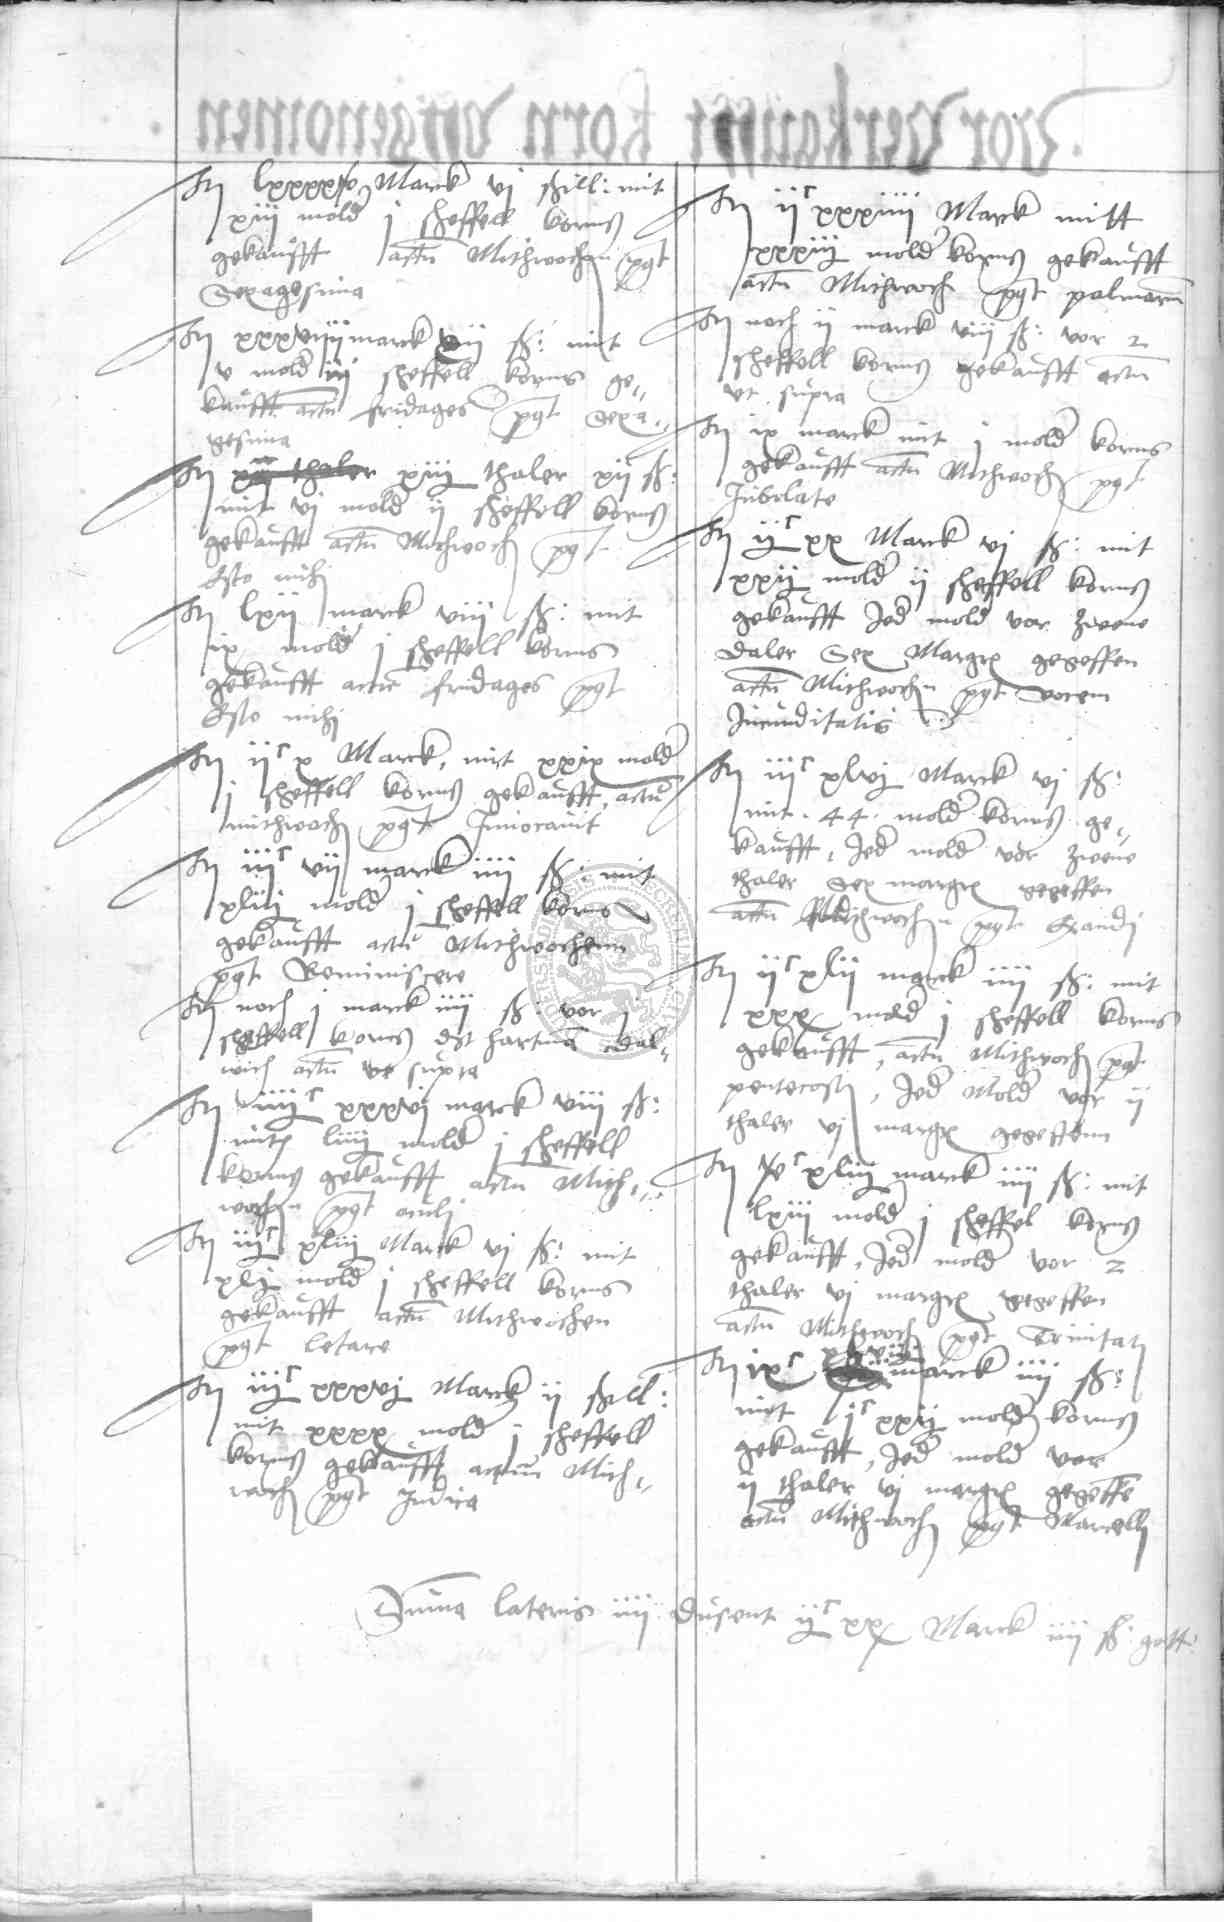 lxxxxv Marck vj schill: mit
xiii mold j scheffell korns
gekaufft actum Mithwochen post
Sexagesima
xxxviiii marck vii ß: mit
v mold iij scheffell korns ge„
kaufft actum fridages post Sexa„
gesima
thaler xiij thaler xij ß:
mit vj mold ij scheffell korns
gekaufft actum Mithwoch post
Esto mihi
lxij marck viii ß: mit
ix mold j scheffell korns
gekaufft actum fridages post
Esto mihi
ijᶜ x Marck, mit xxix mold
j scheffell korns gekaufft, actum
mithwoch post Invocavit
iijᶜ vij marck iiii ß: mit
xliij mold j scheffell korns
gekaufft actum Mithwochenn
post Reminiscere
noch j marck iiii ß: vor j
scheffell korns dst hartman dal„
wich actum vt supra
iiijᶜ xxxvj marck viii ß:
mit liiij mold j scheffell
korns gekaufft actum Mith„
wochen post oculi
iijᶜ xliij Marck vj ß: mit
xlj mold j scheffell korns
gekaufft actum Mithwochen
post letare
iijᶜ xxxvj Marck ij schill:
mit xxxx mold j scheffell
korns gekaufft actum Mith„
woch post Judica
ijᶜ xxxiiii Marck mitt
xxxiij mold korns gekaufft
actum Mithwoch post palmarum
noch ij marck viii ß: vor 2
scheffell korns gekaufft actum
vt supra
ix marck mit j mold korns
gekaufft actum Mithwoch post
Jubilate
ijᶜ xx Marck vj ß: mit
xxij mold ij scheffell korns
gekaufft Jed mold vor zweene
daler Sex Margr gegeffen
actum Mithwochen post vocem
Jucunditatis
iijᶜ xlvj Marck vj ß:
mit 44 mold korns ge„
kaufft, Jed mold vor zweene
thaler Sex margr gegeffen
actum Mithwochen post Exaudi
ijᶜ xlij marck iiii ß: mit
xxx mold j scheffell korns
gekaufft, actum Mithwoch post
pentecost, Jed Mold vor ij
thaler vj margr gegeffenn
vᶜ xliij marck iiii ß: mit
lxiii mold j scheffel korns
gekaufft, Jed mold vor 2
thaler vj margr gegeffen
actum Mithwoch post Trinitatis
ixᶜ marck iiii ß:
mit jᶜ xxij mold korns
gekaufft, Jed mold vor
ij thaler vj margr gegeffen
actum Mithwoch post Marcelli
Summa lateris iiii dusent ijᶜ xx Marck iiii ß: gott: